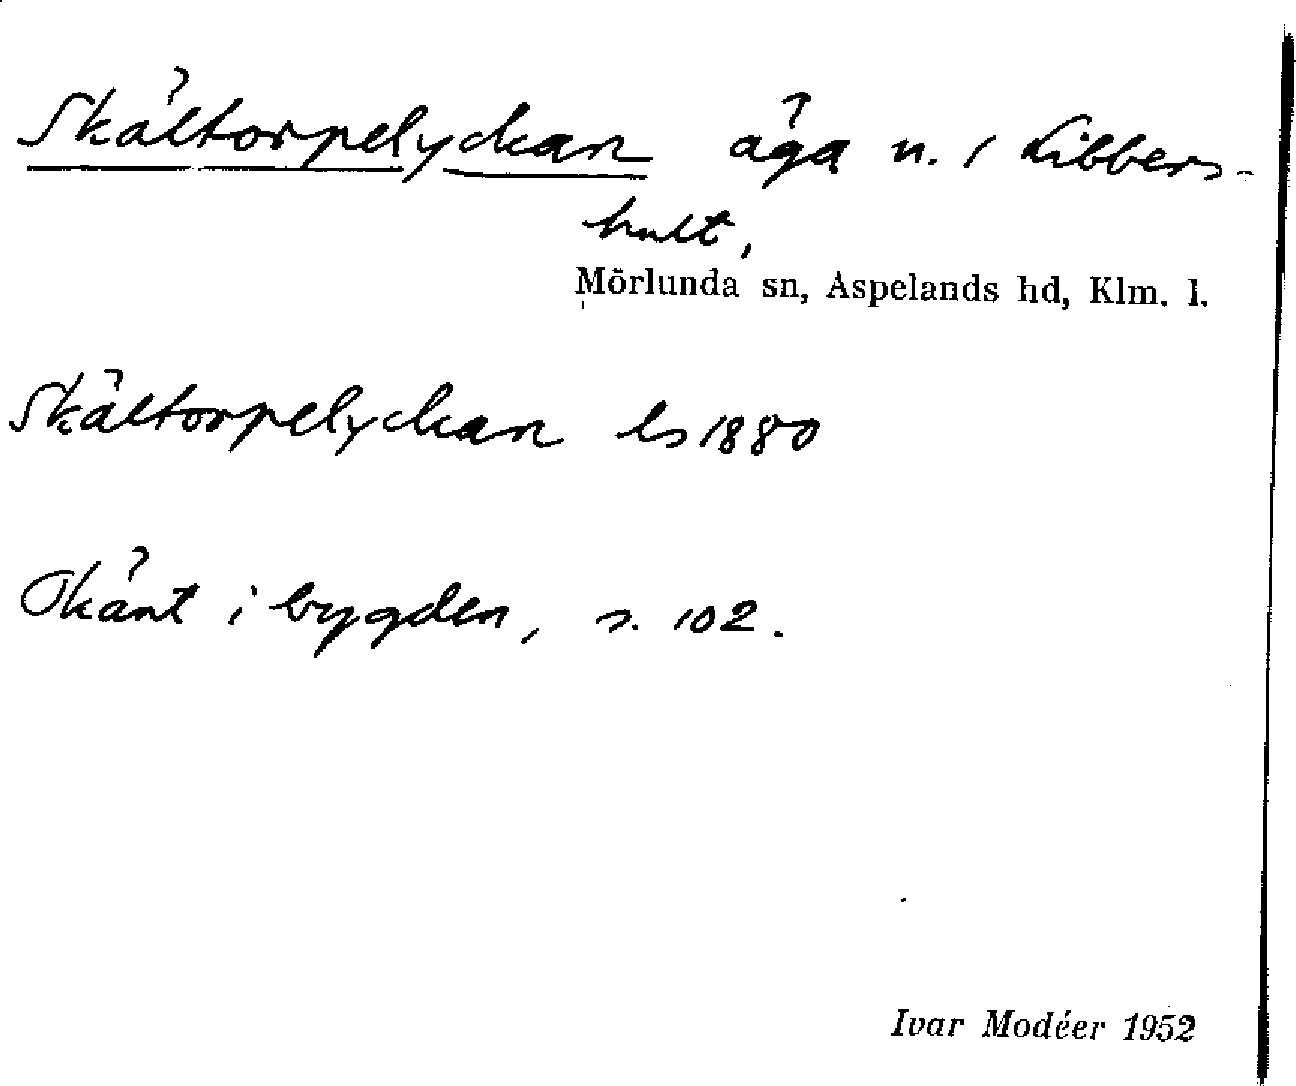 Skältorpelyckan äga n. 1 Libbers-
hult,
Mörlunda sn, Aspelands hd, Klm. l.
Skältorpelyckan ls 1880
Okänt i bygden, s. 102.
Ivar Modéer 1952